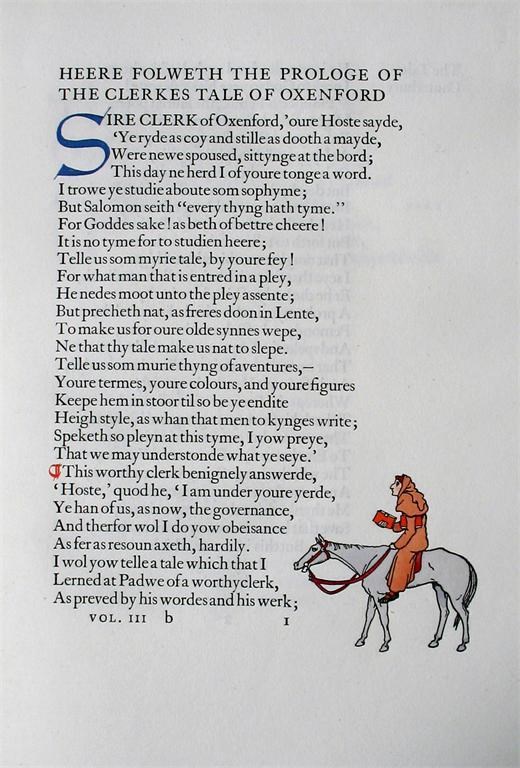 HEERE FOLWETH THE PROLOGE OF
THE CLERKES TALE OF OXENFORD
SIRE CLERK of Oxenford,' oure Hoste sayde,
'Ye ryde as coy and stille as dooth a mayde,
Were newe spoused, sittynge at the bord;
This day ne herd I of youre tonge a word.
I trowe ye studie aboute som sophyme;
But Salomon seith "every thyng hath tyme."
For Goddes sake! as beth of bettre cheere!
It is no tyme for to studien heere;
Telle us som myrie tale, by youre fey!
For what man that is entred in a pley,
He nedes moot unto the pley assente;
But precheth nat, as freres doon in Lente,
To make us for oure olde synnes wepe,
Ne that thy tale make us nat to slepe.
Telle us som murie thyng of aventures,—
Youre termes, youre colours, and youre figures
Keepe hem in stoor til so be ye endite
Heigh style, as whan that men to kynges write;
Speketh so pleyn at this tyme, I yow preye,
That we may understonde what ye seye.'
¶This worthy clerk benignely answerde,
'Hoste,' quod he, 'I am under youre yerde,
Ye han of us, as now, the governance,
And therfor wol I do yow obeisance
As fer as resoun axeth, hardily.
I wol yow telle a tale which that I
Lerned at Padwe of a worthy clerk,
As preved by his wordes and his werk;
VOL. III b 1